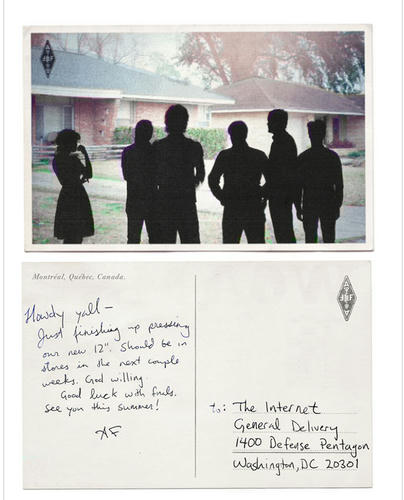 AF
Montréal, Québec, Canada.
Howdy yall –
Just finishing up pressing
our new 12". Should be in
stores in the next couple
weeks. God willing.
Good luck with finals.
See you this summer!
AF
to: The Internet
General Delivery
1400 Defense Pentagon
Washington, DC 20301